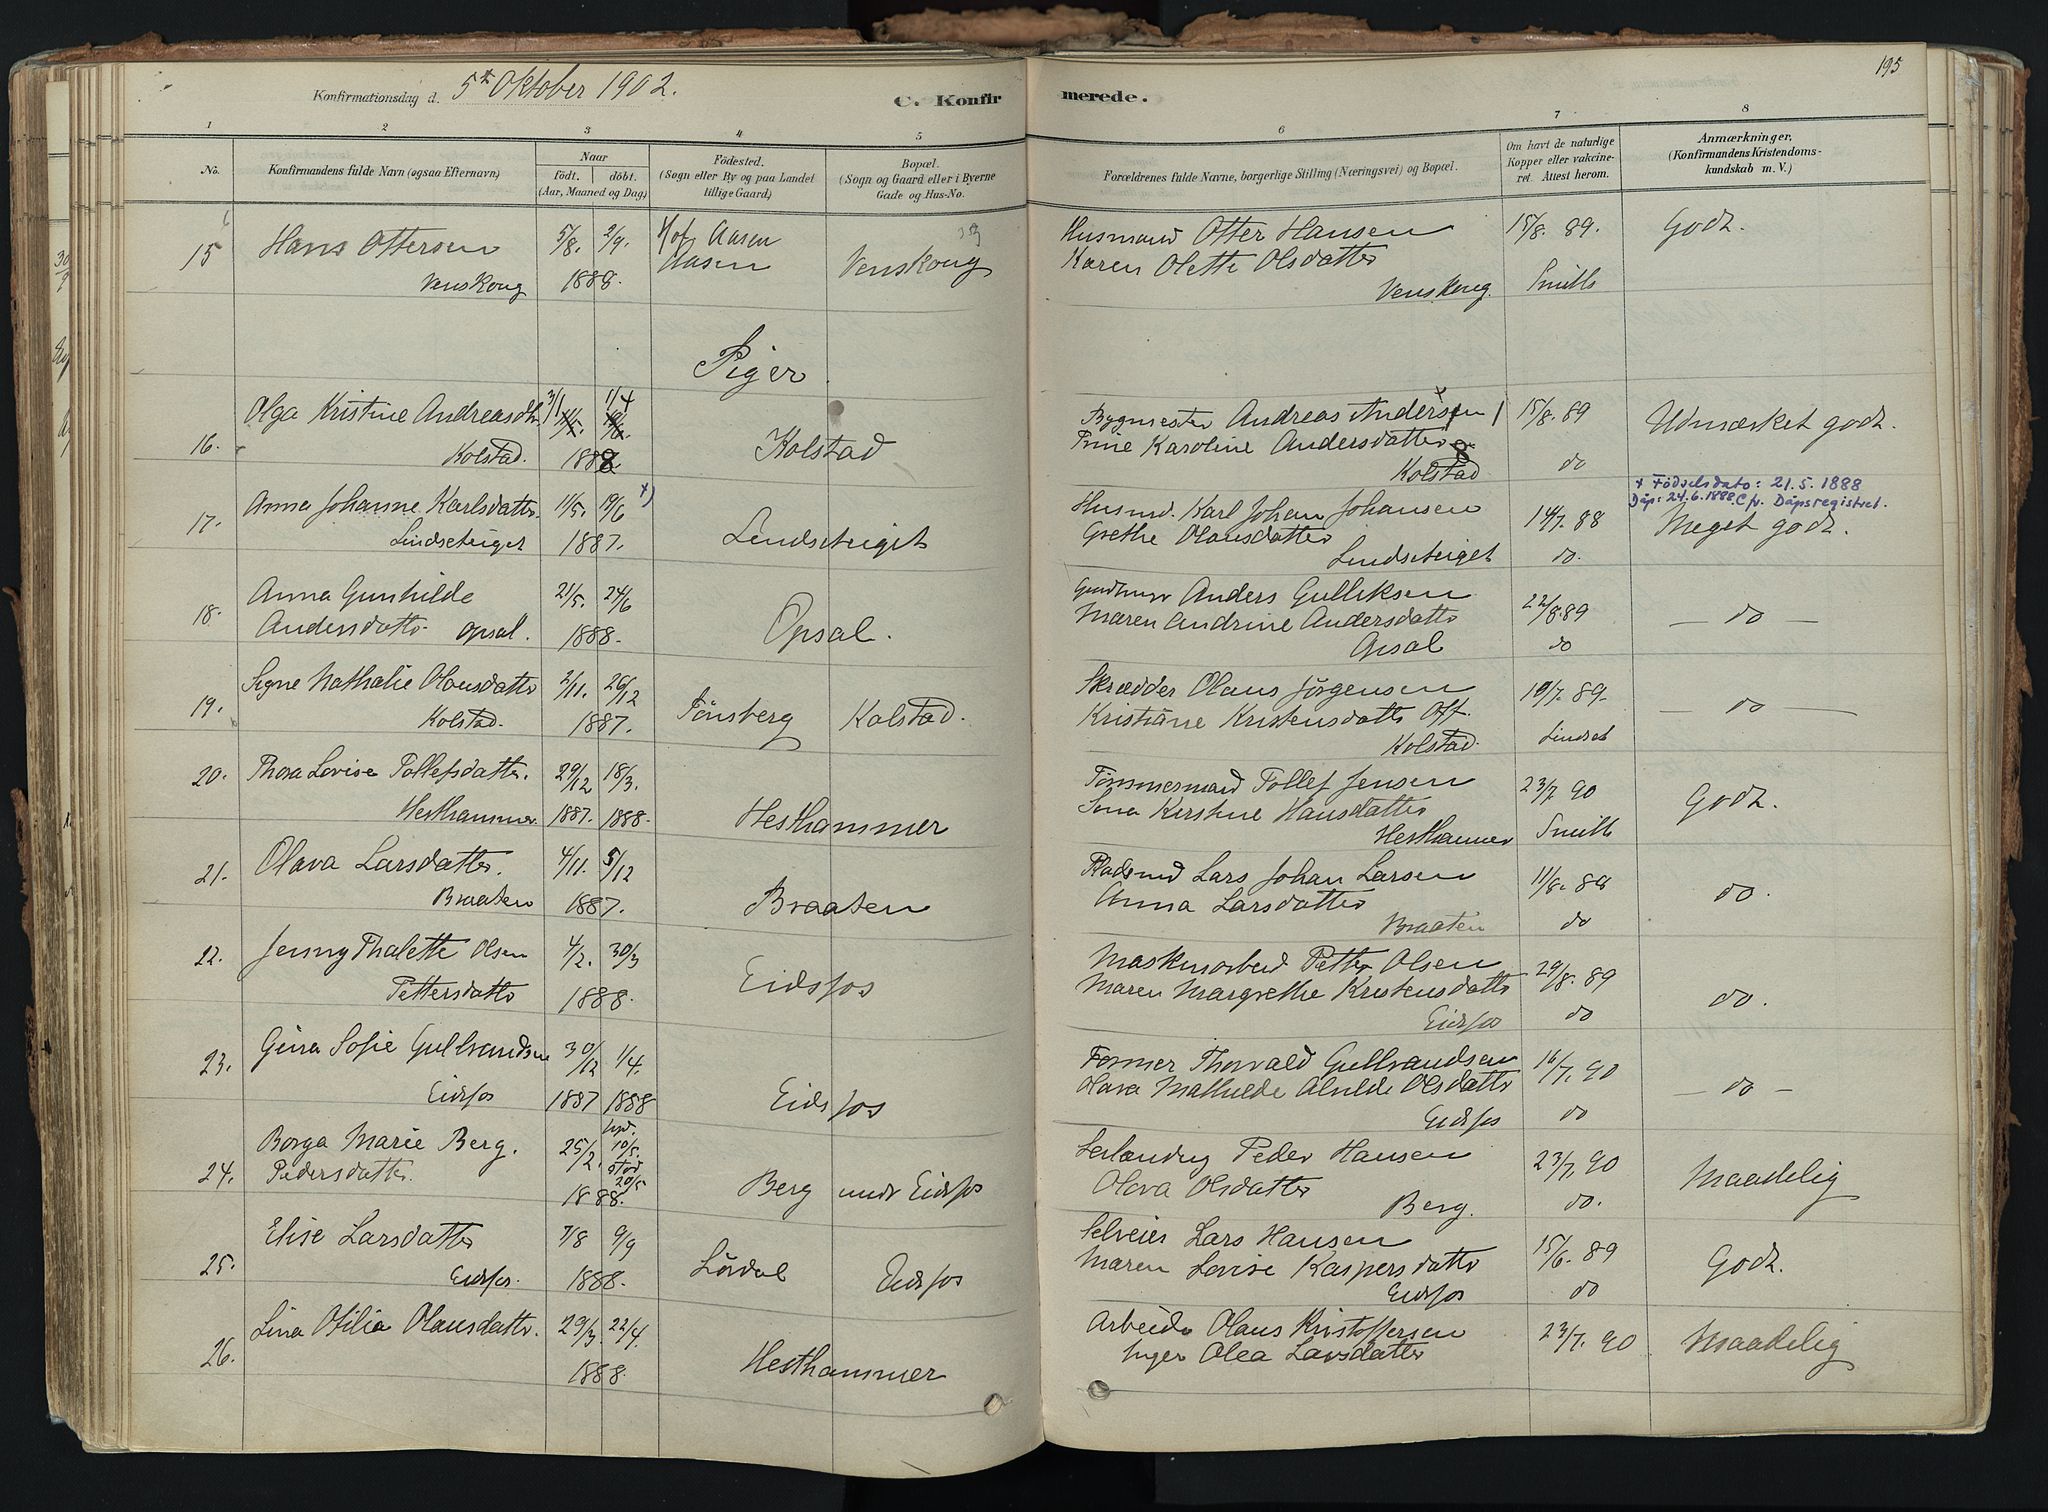 195
Konfirmationsdag d. 5te Oktober 1902.
C. Konfirmerede.
1 2 3 4 5 6 7 8
No.
Konfirmandens fulde Navn (ogsaa Efternavn)
Naar
födt. döbt.
(Aar, Maaned og Dag)
Födested.
(Sogn eller By og paa Landet
tillige Gaard)
Bopæl.
(Sogn og Gaard eller i Byerne
Gade og Hus-No.
Forældrenes fulde Navne, borgerlige Stilling (Næringsvei) og Bopæl.
Om havt de naturlige
Kopper eller vakcine-
ret. Attest herom.
Anmærkninger,
(Konfirmandens Kristendoms-
kundskab m. V.)
15 Hans Ottersen 5/8. 2/9. Aasen Husmand Otter Hansen 15/8. 89. Godt.
Aasen Venskoug Karen Olette Olsdatter
Venskoug 1888. Venskoug. Smith
Piger.
16. Olga Kristine Andreasdtr 3/1 1/4 Kolstad Bygmester Andreas Andersen 15/8. 89 Udmærket godt.
Trine Karoline Andersdatter
Kolstad. 1888 Kolstad do
+ Födselsdato: 21.5.1888
Dåp: 24.6.1888. Cfr. Dåpsregistret.
17. Anna Johanne Karlsdatter 11/5. 19/6 +) Lindseteiget Husmd. Karl Johan Johansen 14/7. 88 Meget godt.
Grethe Olausdatter
Lindseteiget 1887. Lindseteiget do.
18. Anna Gunhilde 21/5. 24/6 Opsal. Anders Gulliksen 22/8. 89 — do —
Andersdatter Opsal. 1888. Maren Andrine Andersdatter
Opsal do
19. Signe Nathalie Olausdatter 2/11. 26/12 Tönsberg Kolstad. Skrædder Olaus Jörgensen 10/7. 89. — do —
Kristiane Kristensdatter
Kolstad. 1887. Kolstad. Lindset
20. Thora Lovise Tollefsdatter. 29/12 18/3. Hesthammer Tömmermand Tollef Jensen 23/7. 90 Godt.
Kirstine Hansdatter
Hesthammer 1887. 1888. Hesthammer Smith
21. Olava Larsdatter. 4/11. 5/12 Braaten Pladsmd Lars Johan Larsen 11/8. 88 do.
Anna Larsdatter
Braaten 1887. Braaten do
22. Jenny Thalette Olsen 4/2. 30/3 Eidsfos Maskinarbeid Petter Olsen 29/8. 89 do.
Pettersdatter 1888. Maren Margrethe Kristensdatter
Eidsfos do
23. Gina Sofie Gulbrandsen 30/12 1/4. Eidsfos Former Thorvald Gulbrandsen 16/7. 90 — do —
Olava Mathilde Alvilde Olsdatter
Eidsfos 1887 1888 Eidsfos do
24. Borga Marie Berg. 25/2. hjd. 10/5. stad. 20/5 Berg under Eidsfos Peder Hansen 23/7. 90 Maadelig
Pedersdatter. 1888. Olava Olsdatter
Berg. do.
25. Elise Larsdatter 7/8 9/9 Lövdal Eidsfos Selveier Lars Hansen 15/6. 89 Godt.
Maren Lovise Kaspersdatter
Eidsfos. 1888. Eidsfos do
26. Lina Otilia Olausdatter. 29/3. 22/4. Hesthammer Arbeider Olaus Kristoffersen 23/7. 90 Maadelig
1888. Inger Olea Larsdatter